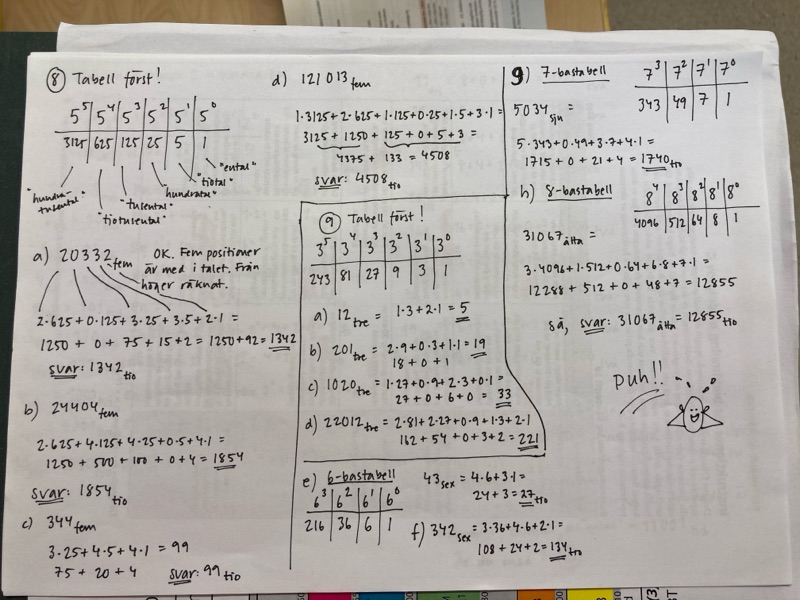 8 Tabell först!
5⁵ 5⁴ 5³ 5² 5¹ 5⁰
3125 625 125 25 5 1
"hundra-tusental" "tiotusental" "tusental" "hundratal" "tiotal" "ental"
a) 20332fem OK. Fem positioner
är med i talet. Från
höger räknat.
2·625+0·125+3·25+3·5+2·1 =
1250 + 0 + 75 + 15 + 2 = 1250+92 = 1342
svar: 1342tio
b) 24404fem
2·625+4·125+4·25+0·5+4·1 =
1250 + 500 + 100 + 0 + 4 = 1854
svar: 1854tio
c) 344fem
3·25+4·5+4·1 = 99
75 + 20 + 4 svar: 99tio
d) 121013fem
1·3125+2·625+1·125+0·25+1·5+3·1 =
3125 + 1250 + 125 + 0 + 5 + 3 =
4375 + 133 = 4508
svar: 4508tio
9 Tabell först!
3⁵ 3⁴ 3³ 3² 3¹ 3⁰
243 81 27 9 3 1
a) 12tre = 1·3+2·1 = 5
b) 201tre = 2·9+0·3+1·1 = 19
18 + 0 + 1
c) 1020tre = 1·27+0·9+2·3+0·1 =
27 + 0 + 6 + 0 = 33
d) 22012tre = 2·81+2·27+0·9+1·3+2·1
162 + 54 + 0 + 3 + 2 = 221
e) 6-bastabell
6³ 6² 6¹ 6⁰
216 36 6 1
43sex = 4·6+3·1 =
24 + 3 = 27tio
f) 342sex = 3·36+4·6+2·1 =
108 + 24 + 2 = 134tio
9) 7-bastabell
7³ 7² 7¹ 7⁰
343 49 7 1
5034sju =
5·343+0·49+3·7+4·1 =
1715 + 0 + 21 + 4 = 1740tio
h) 8-bastabell
8⁴ 8³ 8² 8¹ 8⁰
4096 512 64 8 1
31067åtta =
3·4096+1·512+0·64+6·8+7·1 =
12288 + 512 + 0 + 48 + 7 = 12855
så, svar: 31067åtta = 12855tio
puh!!